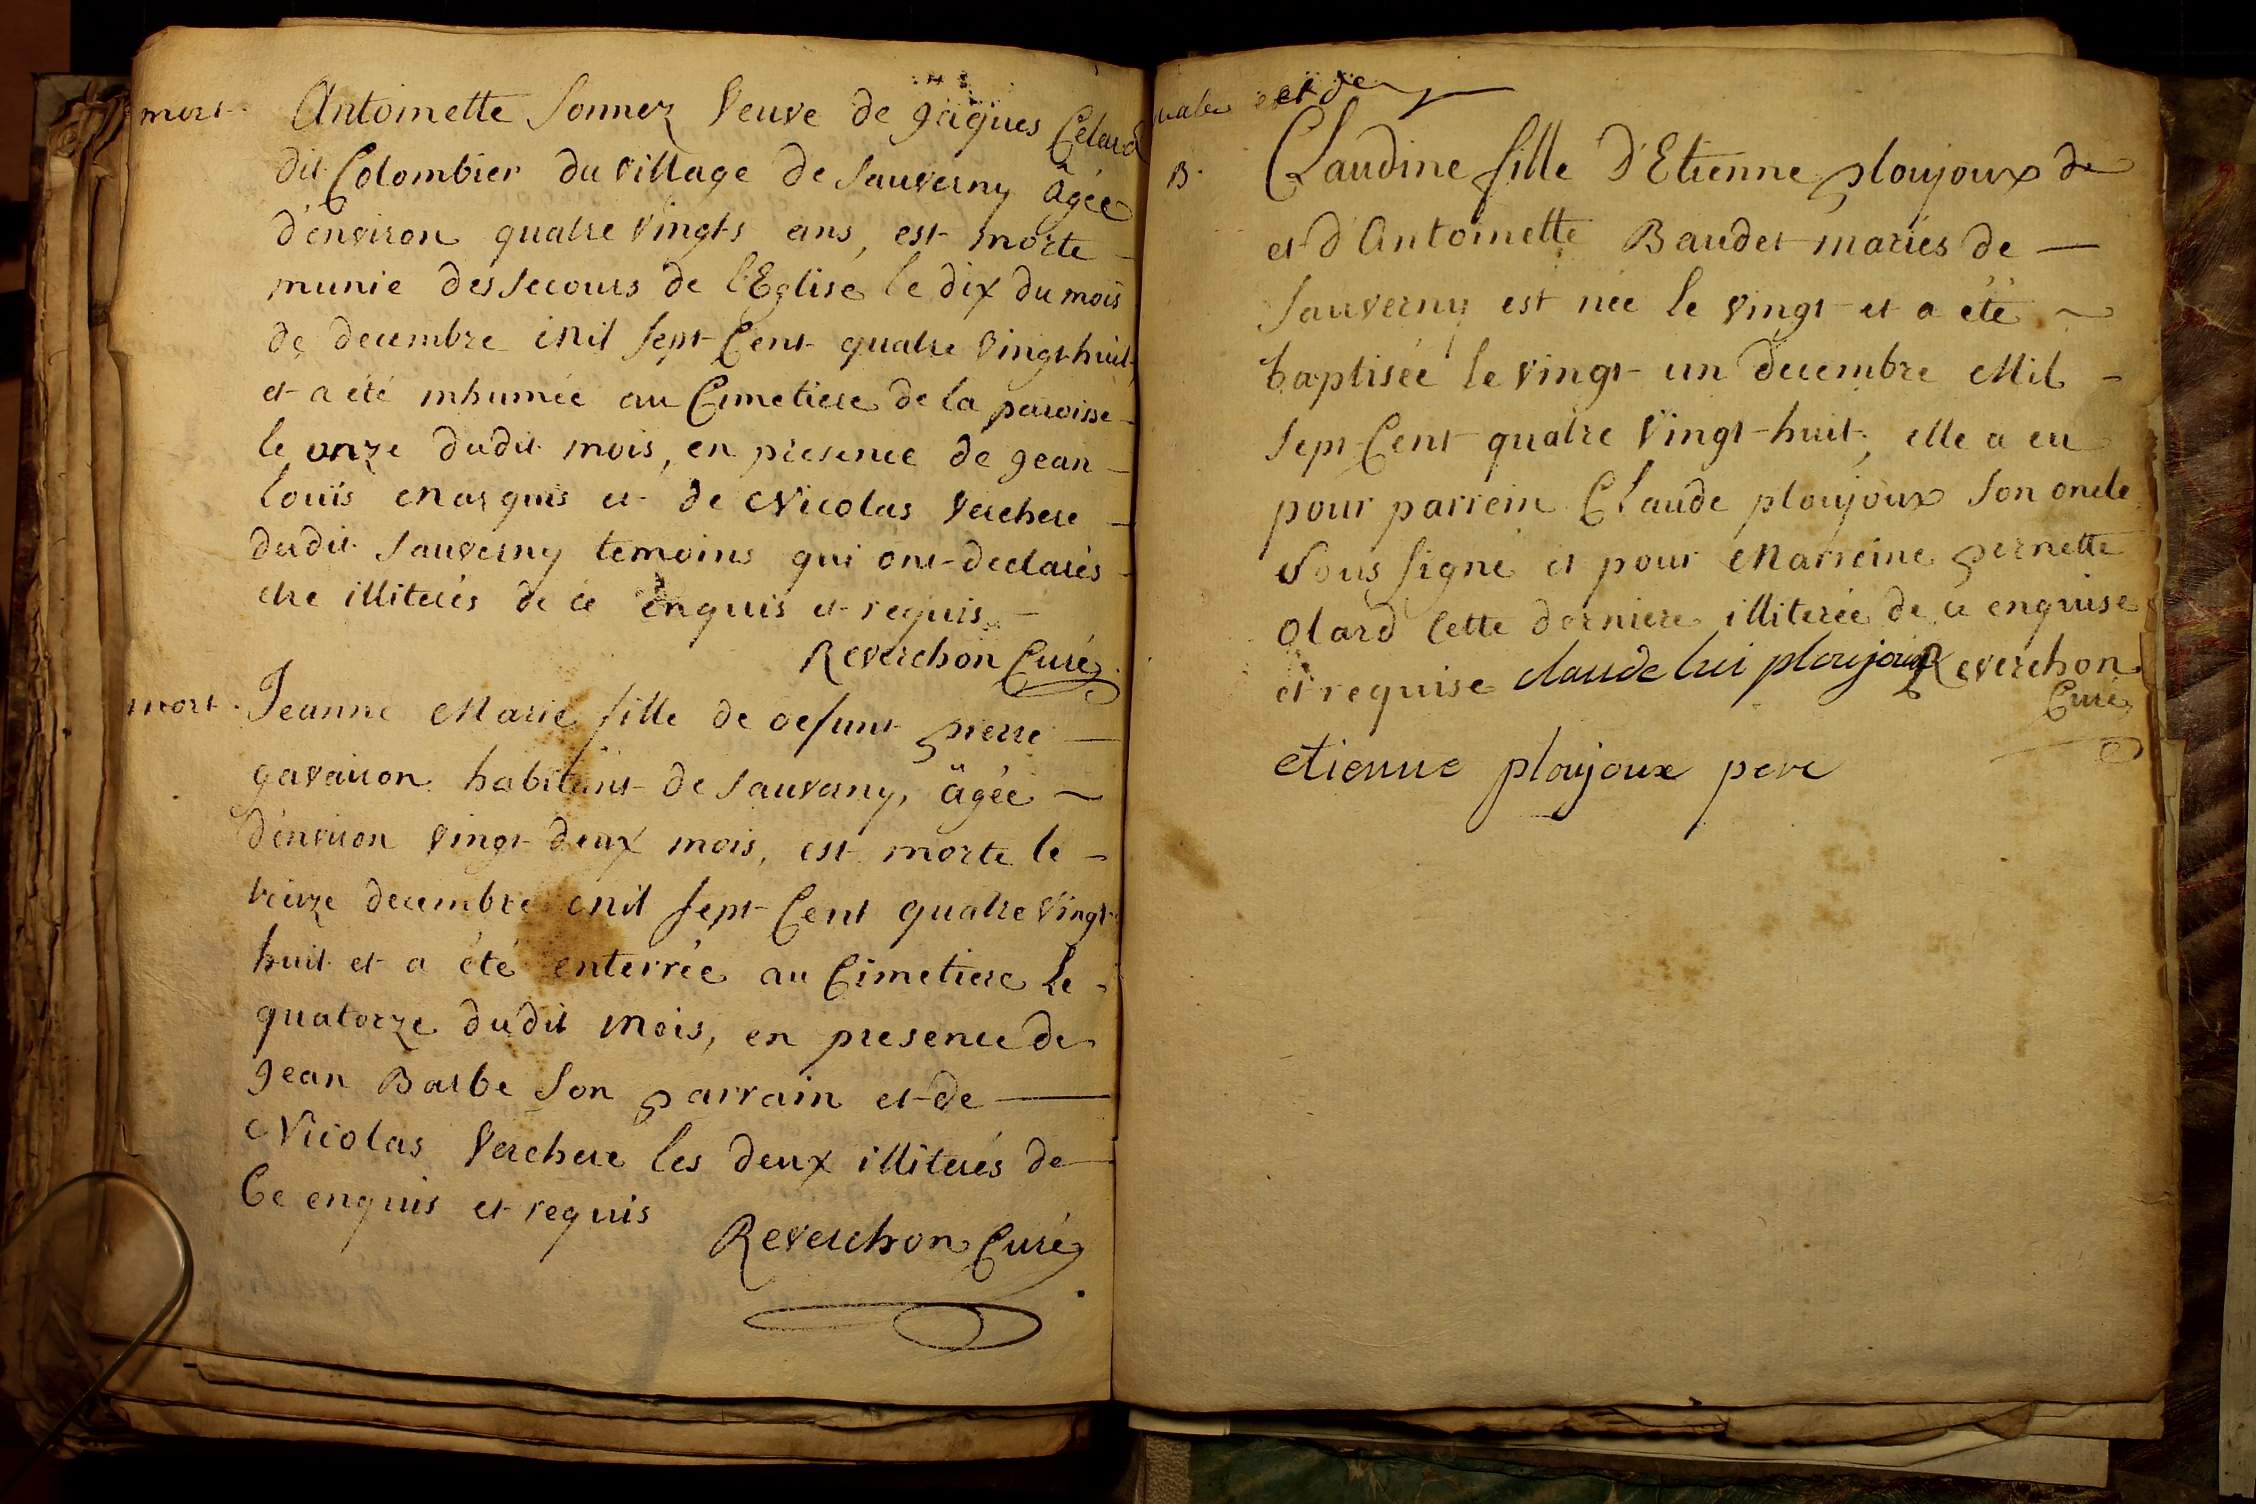 mort. Antoinette Sonnez veuve de jaques Celard
dit Colombier du village de Sauverny âgée
d'environ quatre vingts ans, est morte
munie des secours de l'Eglise le dix du mois
de decembre mil sept Cent quatre vingt huit,
et a été inhumée au Cimetiere de la paroisse
le onze dudit mois, en presence de jean
louïs Marquis et de Nicolas Verchere
dudit Sauverny temoins qui ont declarés
etre illiterés de ce enquis et requis
Reverchon Curé
mort. Jeanne Marie fille de defunt pierre
gavairon habitant de Sauverny, âgée
d'environ vingt deux mois, est morte le
treize decembre mil sept Cent quatre vingt
huit et a été enterrée au Cimetiere le
quatorze dudit mois, en presence de
jean Barbe son parrain et de
Nicolas Verchere les deux illiterés de
Ce enquis et requis
Reverchon Curé
et de
B. Claudine fille d'Etienne ploujoux de
et d'Antoinette Baudet mariés de
Sauverny est née le vingt et a été
baptisée le vingt un decembre Mil
sept Cent quatre vingt huit, elle a eu
pour parrein Claude ploujoux son oncle
sous signé et pour Marreine pernette
olard cette derniere illiterée de ce enquise
et requise claude lui ploujoux Reverchon
Curé
etienne ploujoux pere